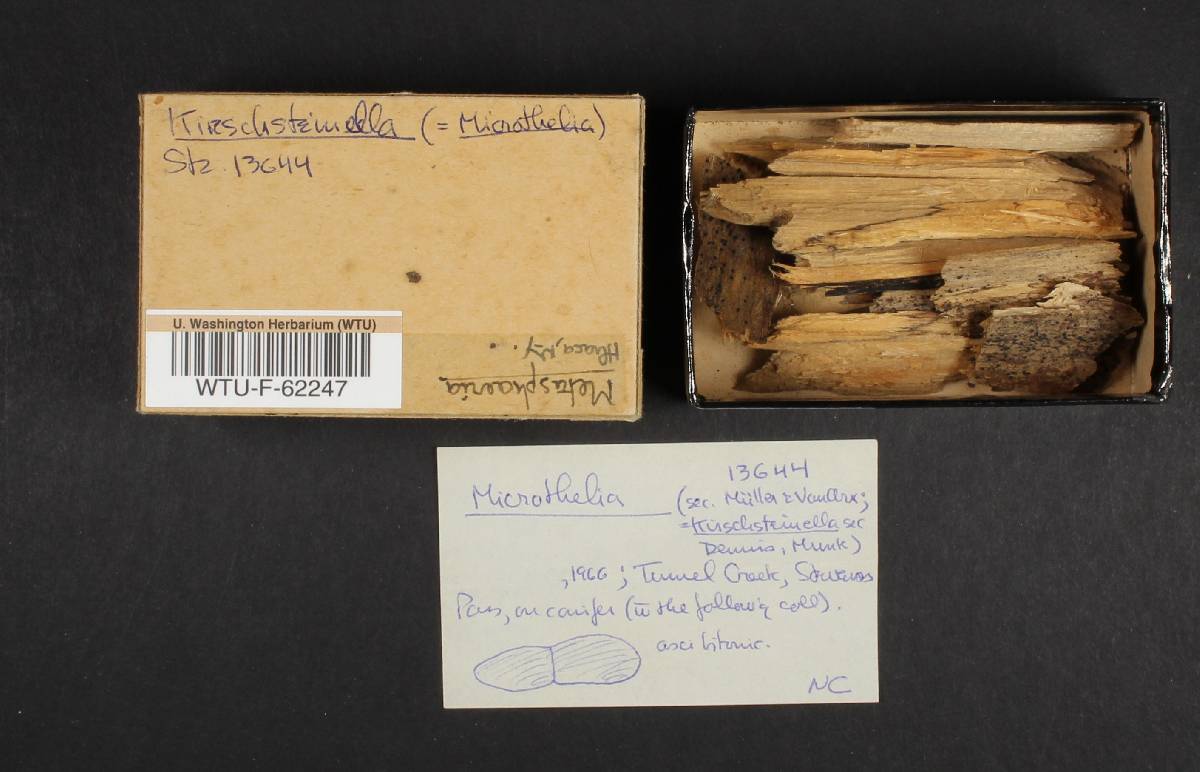 Kirschsteinella (= Microthelia)
Stz. 13644
U. Washington Herbarium (WTU)
WTU-F-62247
Metasphaeria
Ithaca, N.Y.
13644
Microthelia (sec. Müller & VonArx;
= Kirschsteinella sec
Dennis, Munk)
, 1966; Tunnel Creek, Stevens
Pass, on conifer (in the follow'g coll).
asci bitunic.
NC